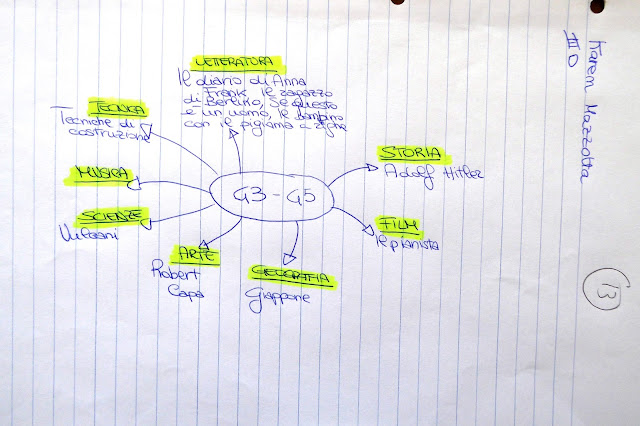 LETTERATURA
Il diario di Anna
Frank, Il ragazzo
di Berlino, Se questo
è un uomo, Il bambino
con il pigiama a righe
TECNICA
Tecniche di
costruzione
MUSICA
SCIENZE
Vulcani
ARTE
Robert
Capa
GEOGRAFIA
Giappone
FILM
Il pianista
STORIA
Adolf Hitler
43-45
Karem Mazzotta
III D
13